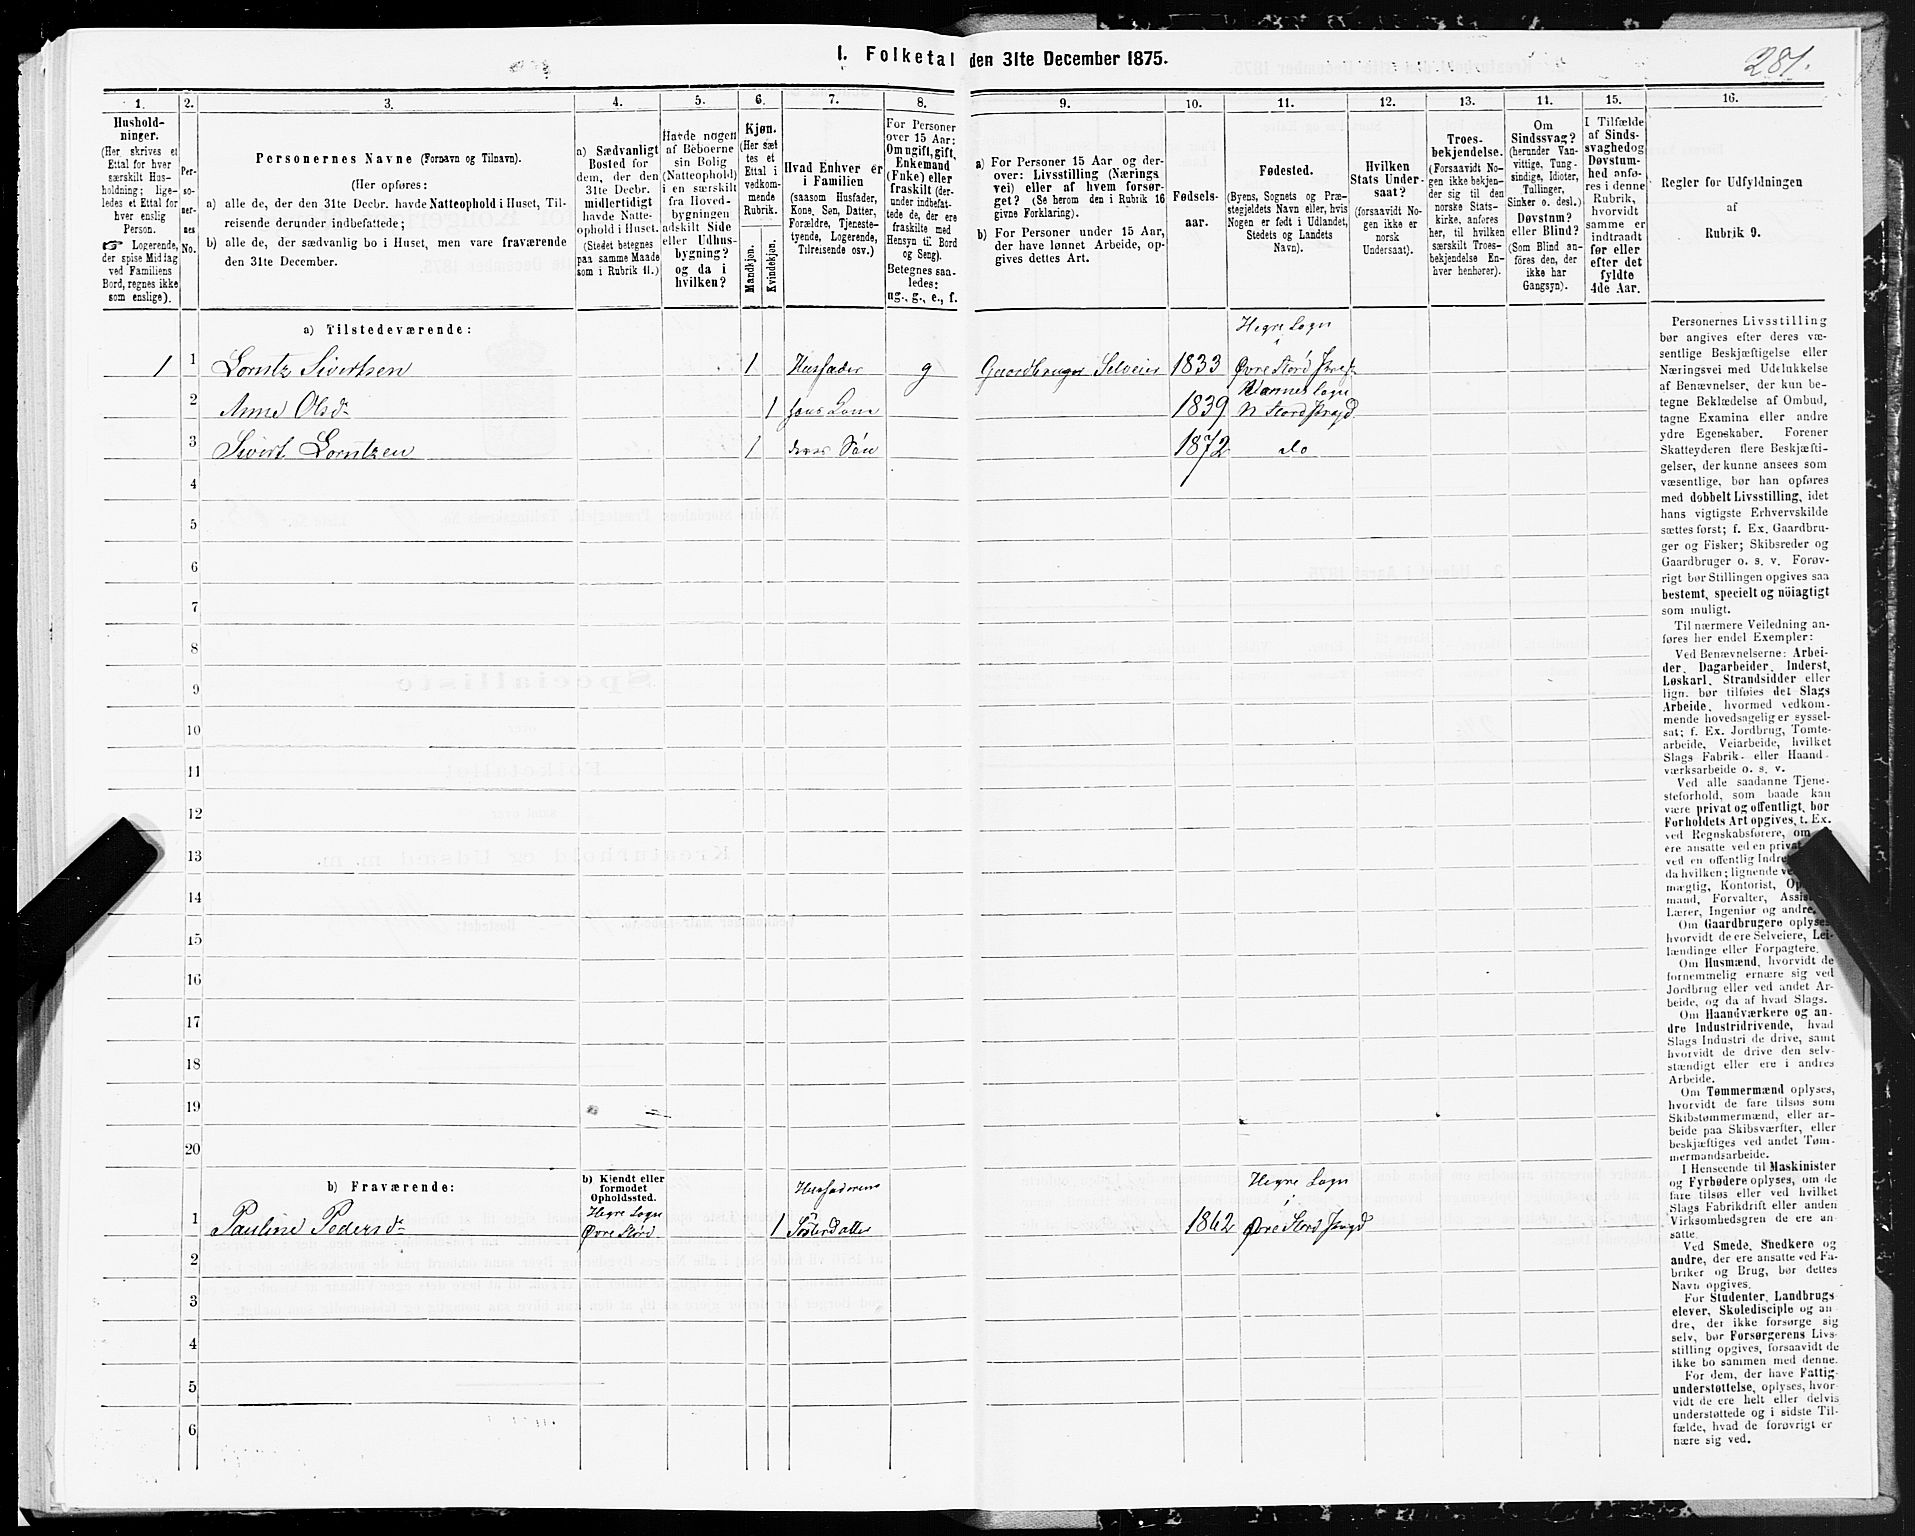 I. Folketal den 31te December 1875.
281.
1.
2.
3.
4.
5.
6.
7.
8.
9.
10.
11.
12.
13.
14.
15.
16.
Hushold-
ninger.
(Her skrives et
Ettal for hver
særskilt Hus-
holdning; lige-
ledes et Ettal for
hver enslig
Person.
☞ Logerende,
der spise Middag
ved Familiens
Bord, regnes ikke
som enslige).
Per-
so-
ner-
nes
No.
Personernes Navne (Fornavn og Tilnavn).
(Her opføres:
a) alle de, der den 31te Decbr. havde Natteophold i Huset, Til-
reisende derunder indbefattede;
b) alle de, der sædvanlig bo i Huset, men vare fraværende
den 31te December.
a) Sædvanligt
Bosted for
dem, der den
31te Decbr.
midlertidigt
havde Natte-
ophold i Huset.
(Stedet betegnes
paa samme Maade
som i Rubrik 11.)
Havde nogen
af Beboerne
sin Bolig
(Natteophold)
i en særskilt
fra Hoved-
bygningen
adskilt Side
eller Udhus-
bygning?
og da i
hvilken?
Kjøn.
(Her sæt
tes et
Ettal i
vedkom-
mende
Rubrik.
Mandkjøn.
Kvindekjøn.
Hvad Enhver er
i Familien
(saasom Husfader,
Kone, Søn, Datter,
Forældre, Tjeneste-
tyende, Logerende,
Tilreisende osv.)
For Personer
over 15 Aar:
Om ugift, gift,
Enkemand
(Enke) eller
fraskilt (der-
under indbefat-
tede de, der ere
fraskilte med
Hensyn til Bord
og Seng).
Betegnes saa-
ledes:
ug., g., e., f.
a) For Personer 15 Aar og der-
over: Livsstilling (Nærings
vei) eller af hvem forsør-
get? (Se herom den i Rubrik 16
givne Forklaring).
b) For Personer under 15 Aar,
der have lønnet Arbeide, op-
gives dettes Art.
Fødsels-
aar.
Fødested.
(Byens, Sognets og Præ-
stegjeldets Navn eller, hvis
Nogen er født i Udlandet,
Stedets og Landets
Navn).
Hvilken
Stats Under-
saat?
(forsaavidt No-
gen ikke er
norsk
Undersaat).
Troes-
bekjendelse.
(Forsaavidt No-
gen ikke bekjen-
der sig til den
norske Stats-
kirke, anføres
her, til hvilken
særskilt Troes-
bekjendelse En-
hver henhører).
Om
Sindssvag?
(herunder Van-
vittige, Tung-
sindige, Idioter,
Tullinger,
Sinker o. desl.)
Døvstum?
eller Blind?
(Som Blind an-
föres den, der
ikke har
Gangsyn).
I Tilfælde
af Sinds-
svaghed og
Døvstum-
hed anfø-
res i denne
Rubrik,
hvorvidt
samme er
indtraadt
før eller
efter det
fyldte
4de Aar.
Regler for Udfyldningen
af
Rubrik 9.
a) Tilstedeværende:
Hegre Sogn
i
1 1 Lorntz Sivertsen 1 Husfader g Gaardbruger Selveier 1833 Øvre Stord
Sogn
2 Anne Olsdr 1 hans Kone 1839 N Stord Prgjd
3 Sivert Lorntzen 1 deres Søn 1872 do
4
5
6
7
8
9
10
11
12
13
14
15
16
17
18
19
20
b) Fraværende:
b) Kjendt eller
formodet
Opholdssted.
Husfaderens
Hegre Sogn
i
Hegre Sogn
1 Pauline Pedersdr Øvre Stord 1 Søsterdatter 1862 Øvre Stord
2
3
4
5
6
Personernes Livsstilling
bør angives efter deres væ-
sentlige Beskjæftigelse eller
Næringsvei med Udelukkelse
af Benævnelser, der kun be-
tegne Beklædelse af Ombud,
tagne Examina eller andre
ydre Egenskaber. Forener
Skatteyderen flere Beskjæfti-
gelser, der kunne ansees som
væsentlige, bør han opføres
med dobbelt Livsstilling, idet
hans vigtigste Erhvervskilde
sættes først; f. Ex. Gaardbru-
ger og Fisker; Skibsreder og
Gaardbruger o. s. v. Forøv-
rigt bør Stillingen opgives saa
bestemt, specielt og nöiagtigt
som muligt.
Til nærmere Veiledning an-
føres her endel Exempler:
Ved Benævnelserne: Arbei-
der, Dagarbeider, Inderst,
Løskarl, Strandsidder eller
lign. bør tilføies det Slags
Arbeide, hvormed vedkom-
mende hovedsagelig er syssel-
sat; f. Ex. Jordbrug, Tomte-
arbeide, Veiarbeide, hvilket
Slags Fabrik- eller Haand-
værksarbeide o. s. v.
Ved alle saadanne Tjene-
steforhold, som baade kan
være privat og offentligt, bør
Forholdets Art opgives, t. Ex.
ved Regnskabsførere, om
ere ansatte ved en privat
ved en offentlig
da hvilken; lignende
mægtig, Kontorist,
mand, Forvalter,
Lærer, Ingeniør og andre.
Om Gaardbrugere oplyses
hvorvidt de ere Selveiere, Lei-
lændinge eller Forpagtere.
Om Husmænd, hvorvidt de
fornemmelig ernære sig ved
Jordbrug eller ved andet Ar-
beide, og da af hvad Slags.
Om Haandværkere og an-
dre Industridrivende, hvad
Slags Industri de drive, samt
hvorvidt de drive den selv-
stændigt eller ere i andres
Arbeide.
Om Tømmermænd oplyses,
hvorvidt de fare tilsøs som
Skibstømmermænd, eller ar-
beide paa Skibsværfter, eller
beskjæftiges ved andet Tøm-
mermandsarbeide.
I Henseende til Maskinister
og Fyrbødere oplyses, om de
fare tilsøs eller ved hvilket
Slags Fabrikdrift eller anden
Virksomhedsgren de ere an-
satte.
Ved Smede, Snedkere og
andre, der ere ansatte ved Fa-
briker og Brug, bør dettes
Navn opgives.
For Studenter, Landbrugs-
elever, Skoledisciple og an-
dre, der ikke forsørge sig
selv, bør Forsørgerens Livs-
stilling opgives, forsaavidt de
ikke bo sammen med denne.
For dem, der have Fattig-
understøttelse, oplyses, hvor-
vidt de ere helt eller delvis
understøttede og i sidste Til-
fælde, hvad de forøvrigt er
nære sig ved.